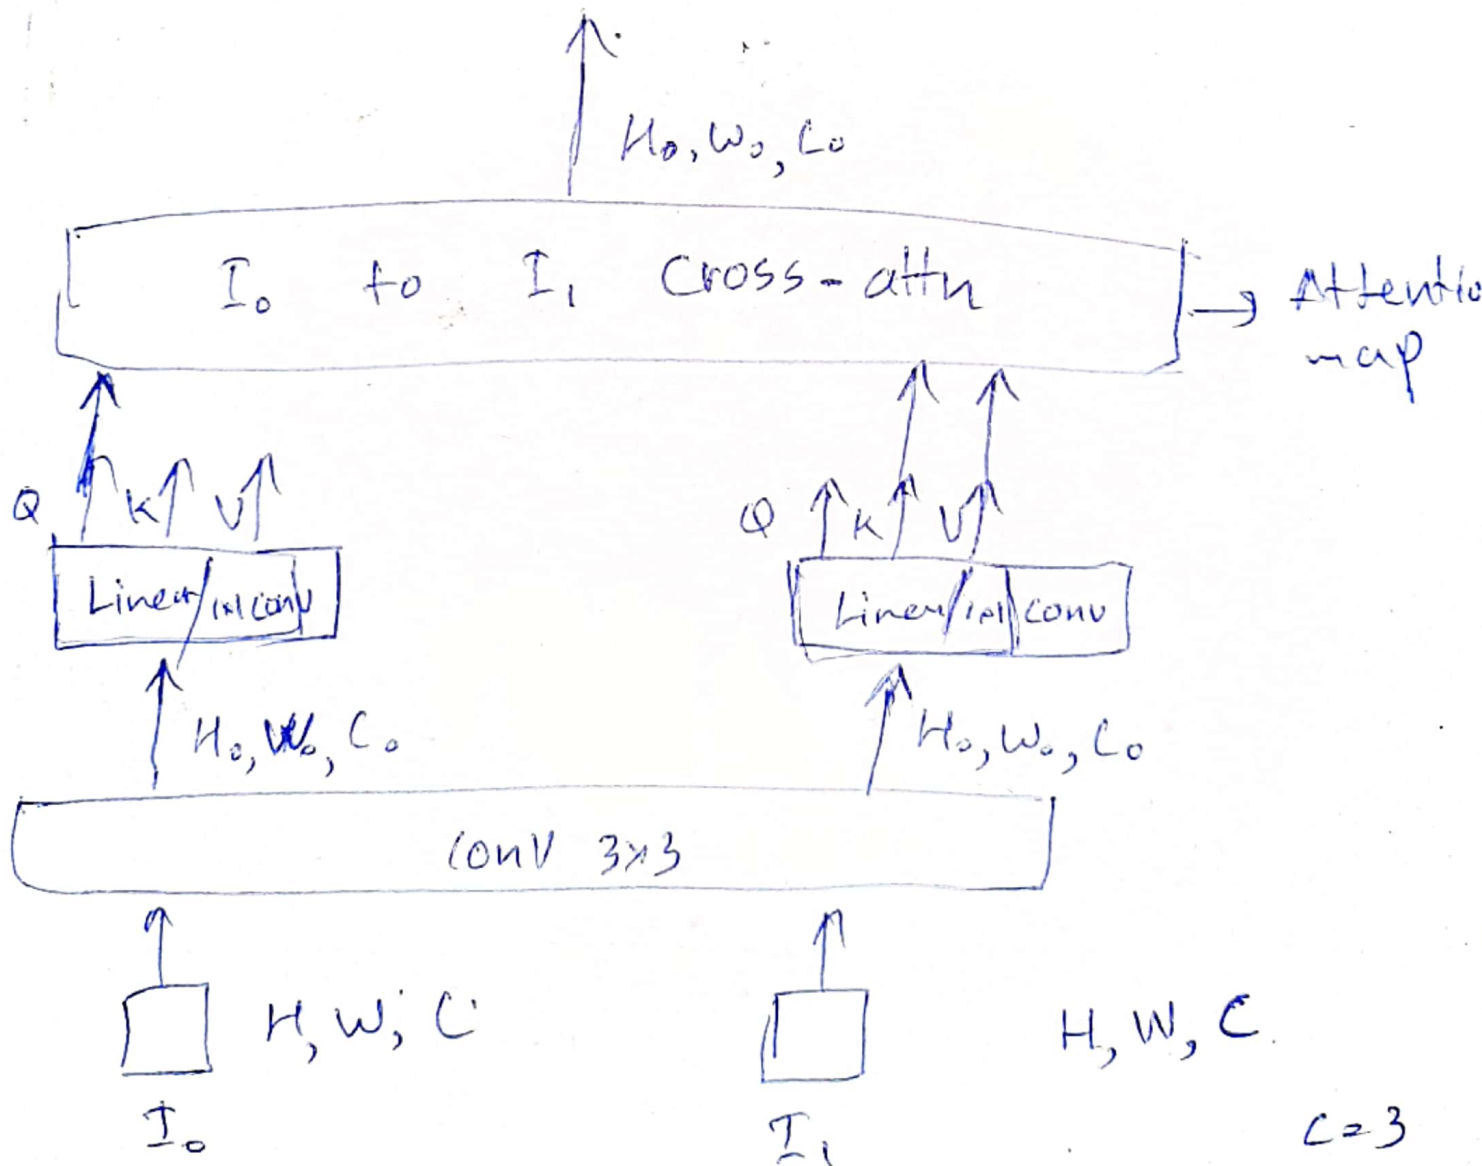 H₀, W₀, C₀
I₀ to I₁ Cross-attn → Attentio
map
Q K V
Q K V
Linear/1x1 conv
Linear/1x1 conv
H₀, W₀, C₀
H₀, W₀, C₀
conv 3x3
H, W, C
H, W, C
I₀
I₁
C=3